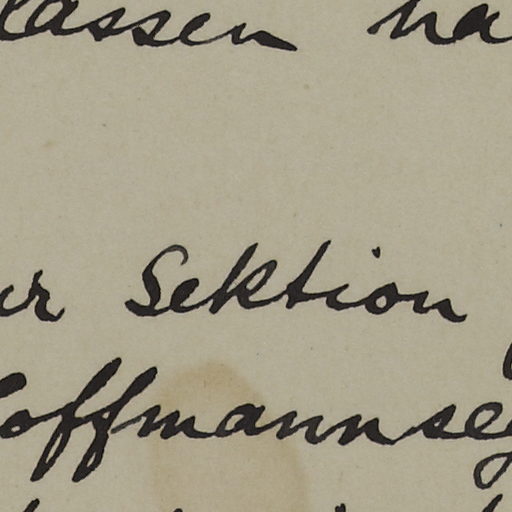 lassen ha
ur Sektion
Hoffmannseg